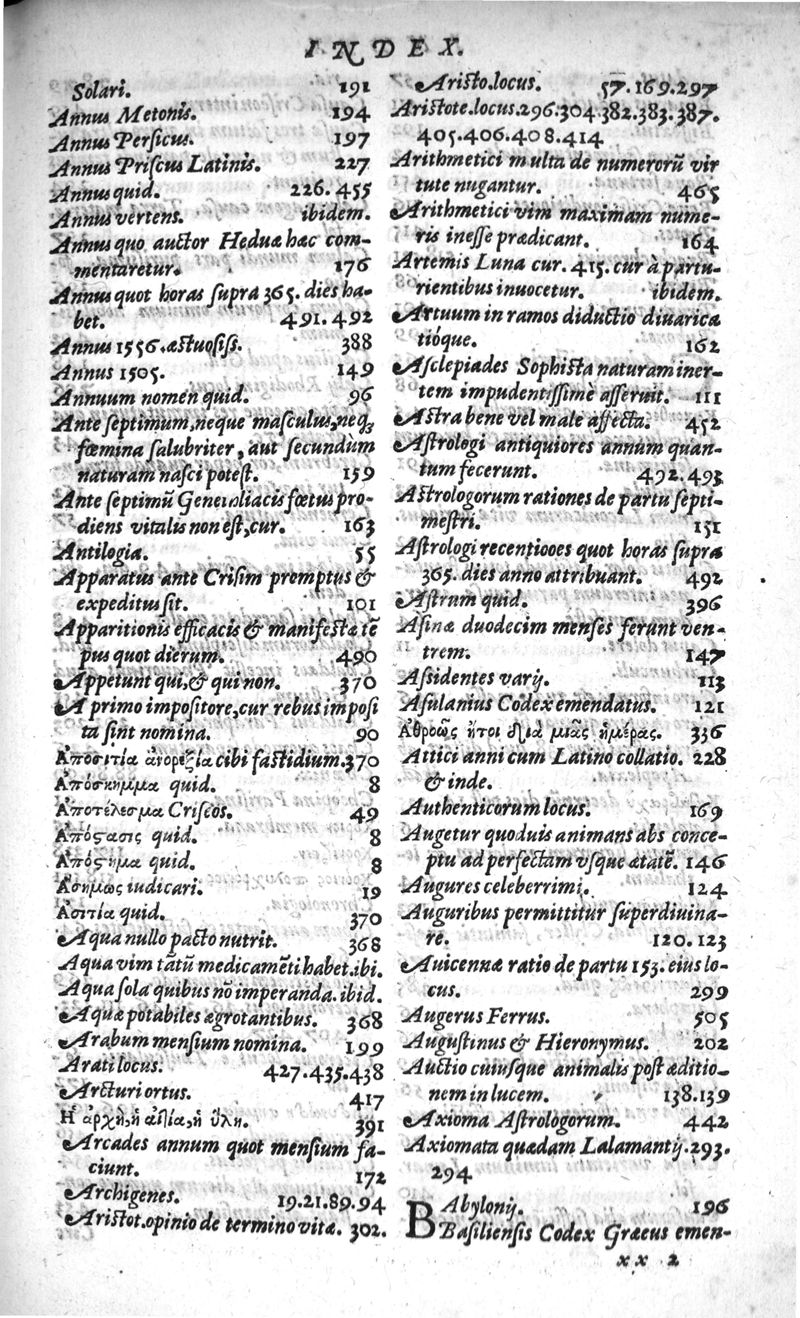 INDEX.
Solari. 191
Annus Metonis. 194
Annus Persicus. 197
Annus Priſcus Latinis. 227
Annus quid. 226.455
Annus vertens. ibidem.
Annus quo auctor Heduæ hæc com-
mentaretur. 176
Annus quot horas ſupra 365. dies ha-
bet. 491.492
Annus 1556. æſtuoſiſſ. 388
Annus 1505. 149
Annuum nomen quid. 96
Ante ſeptimum, neque maſculus, neq;
fœmina ſalubriter, aut ſecundum
naturam naſci poteſt. 159
Ante ſeptimũ Genethliacis fœtus pro-
diens vitalis non eſt, cur. 163
Antilogia. 55
Apparatus ante Criſim promptus &
expeditus ſit. 101
Apparitionis efficacis & manifeſtæ tẽ
pus quot dierum. 490
Appetunt qui, & qui non. 370
A primo impoſitore, cur rebus impoſi
ta ſint nomina. 90
Ἀποσιτία ἀνορεξία cibi faſtidium. 370
Ἀπόσκημμα quid. 8
Ἀποτέλεσμα Criſeos. 49
Ἀπόϛασις quid. 8
Ἀπόϛημα quid. 8
Ἀσήμως iudicari. 19
Ἀσιτία quid. 370
Aqua nullo pacto nutrit. 368
Aqua vim tãtũ medicamẽti habet. ibi.
Aqua ſola quibus nõ imperanda. ibid.
Aquæ potabiles ægrotantibus. 368
Arabum menſium nomina. 199
Arati locus. 427.435.438
Arcturi ortus. 417
Ἡ ἀρχὴ, ἡ αἰτία, ἡ ὕλη. 391
Arcades annum quot menſium fa-
ciunt. 172
Archigenes. 19.21.89.94
Ariſtot. opinio de termino vitæ. 302.
Ariſto. locus. 57.169.297
Ariſtote. locus. 296.304.382.383.387.
405.406.408.414
Arithmetici multa de numerorũ vir
tute nugantur. 465
Arithmetici vim maximam nume-
ris ineſſe prædicant. 164
Artemis Luna cur. 415. cur à partu-
rientibus inuocetur. ibidem.
Artuum in ramos diductio diuarica
tióque. 162
Aſclepiades Sophiſta naturam iner-
tem impudentiſſimè aſſeruit. 111
Aſtra bene vel male affecta. 452
Aſtrologi antiquiores annum quan-
tum fecerunt. 492.493
Aſtrologorum rationes de partu ſepti-
meſtri. 151
Aſtrologi recentiooes quot horas ſupra
365. dies anno attribuant. 492
Aſtrum quid. 396
Aſinæ duodecim menſes ferunt ven-
trem. 147
Aſſidentes varij. 113
Aſulanius Codex emendatus. 121
Ἀθρόως ἤτοι διὰ μιᾶς ἡμέρας. 336
Attici anni cum Latino collatio. 228
& inde.
Authenticorum locus. 169
Augetur quoduis animans abs conce-
ptu ad perfectam vſque ætatẽ. 146
Augures celeberrimi. 124
Auguribus permittitur ſuperdiuina-
re. 120.123
Auicennæ ratio de partu 153. eius lo-
cus. 299
Augerus Ferrus. 505
Auguſtinus & Hieronymus. 202
Auctio cuiuſque animalis poſt æditio-
nem in lucem. 138.139
Axioma Aſtrologorum. 442
Axiomata quædam Lalamantij. 293.
294
BAbylonij. 196
Baſilienſis Codex Græcus emen-
xx 2